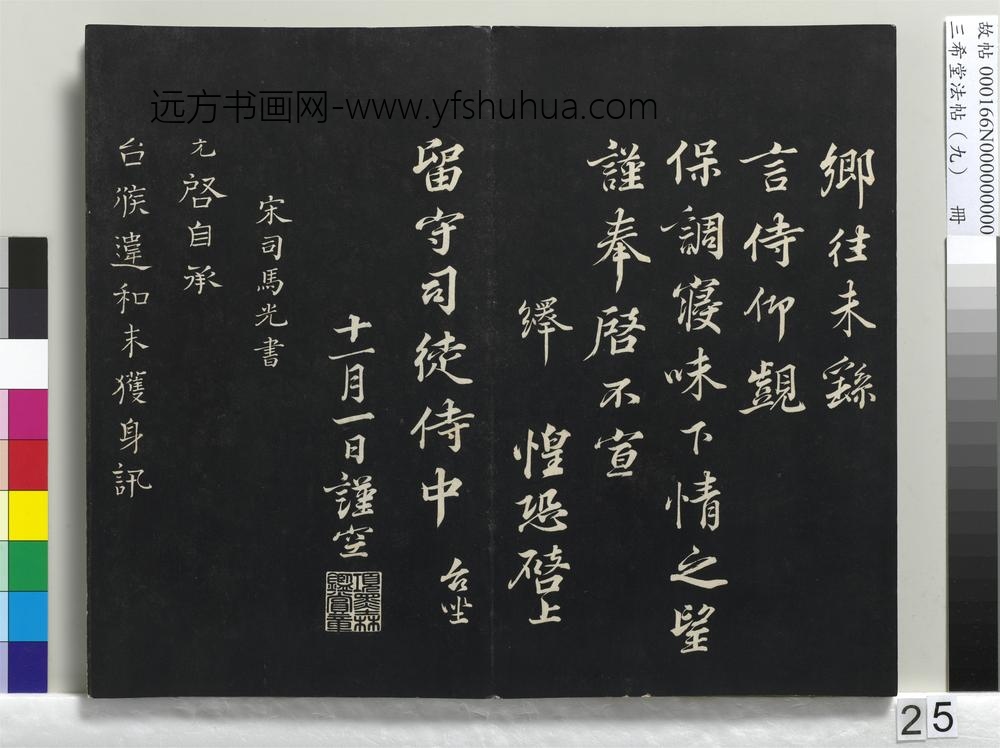 鄉往未繇
言侍仰觀
保調寢味下情之望
謹奉啓不宣
繹 惶恐啓上
留守司徒侍中 台坐
十一月一日謹空
項墨林鑑賞章
宋司馬光書
光啓自承
台候違和未獲身訊
远方书画网-www.yfshuhua.com
故帖 000166N000000000
三希堂法帖(九) 冊
25